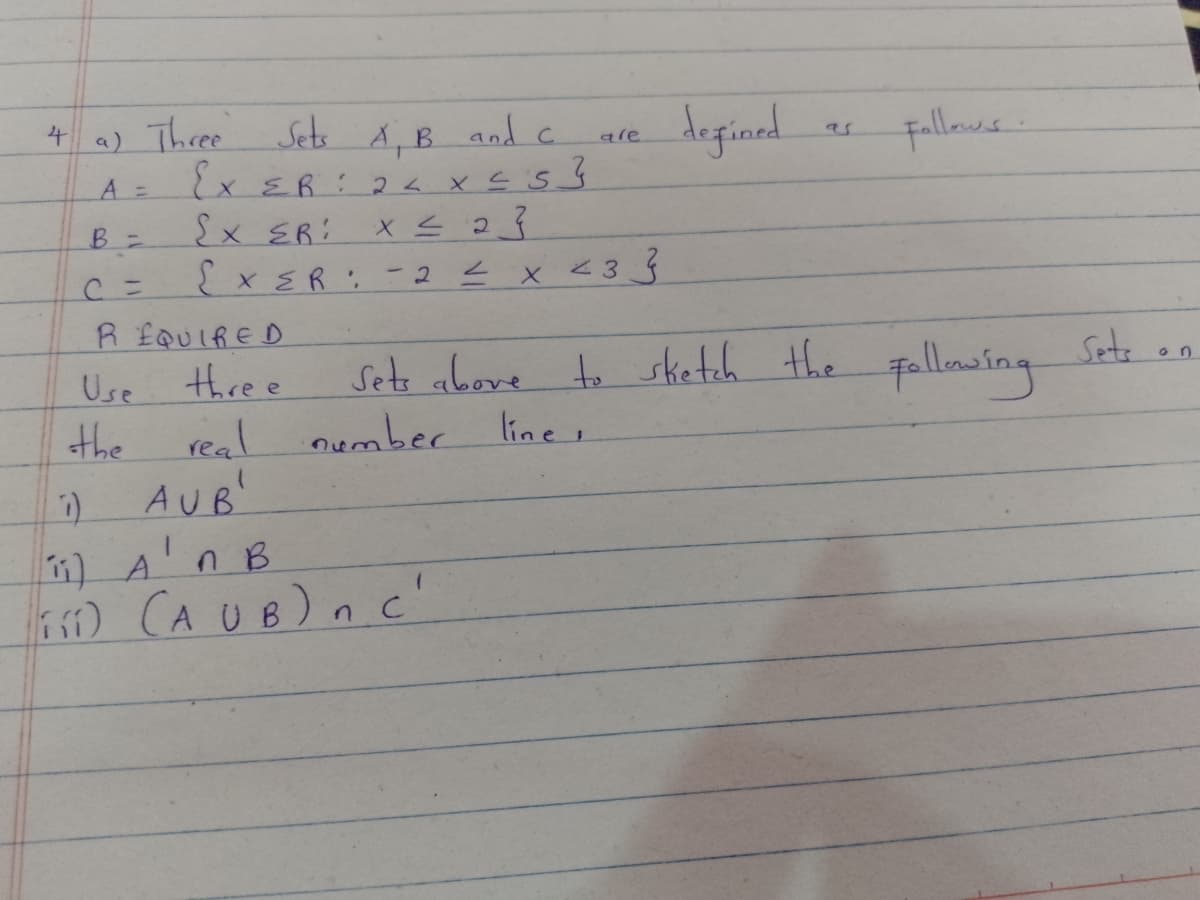 4 a) Three Sets A, B and C are defined as follows.
A = {x ∈ R : 2 < x ≤ 5}
B = {x ∈ R : x ≤ 2}
C = {x ∈ R : -2 ≤ x < 3}
REQUIRED
Use three Sets above to sketch the following Sets on
the real number line.
i) A ∪ B'
ii) A' ∩ B
iii) (A ∪ B) ∩ C'